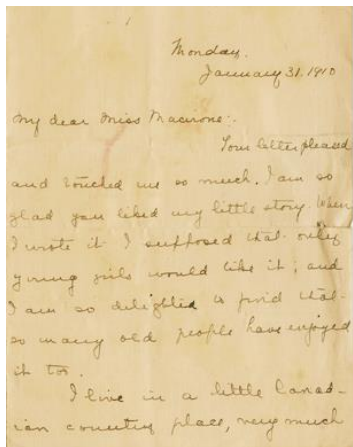 Monday.
January 31. 1910
My dear Miss Macirone:.
Your letter pleased
and touched me so much. I am so
glad you liked my little story. When
I wrote it I supposed that only
young girls would like it; and
I am so delighted to find that
so many old people have enjoyed
it too.
I live in a little Canad-
ian country place, very much